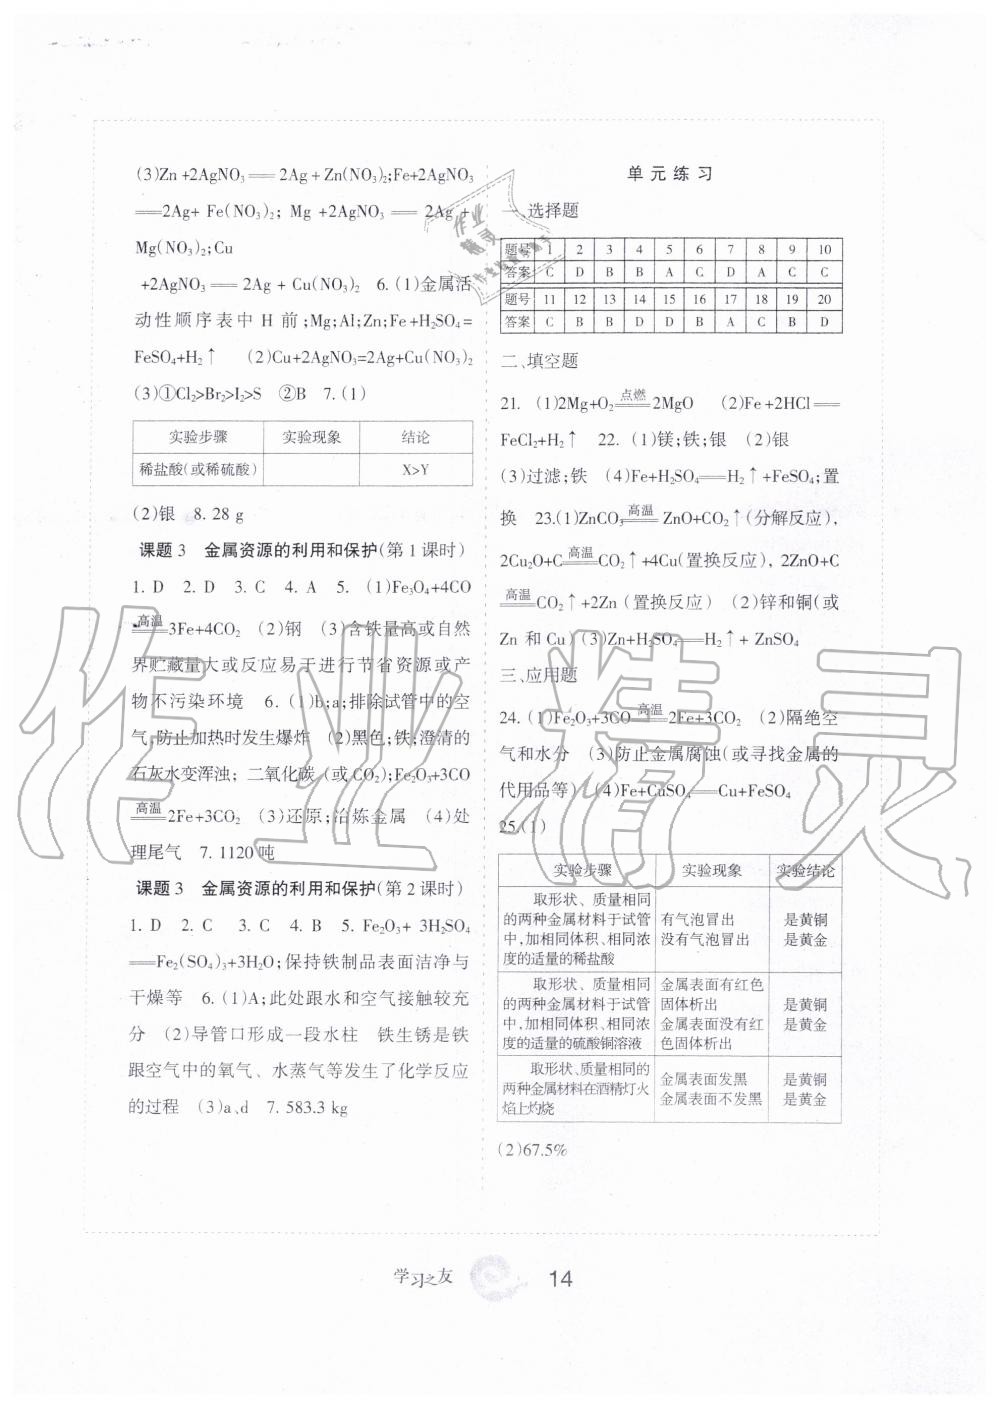 (3)Zn+2AgNO₃══2Ag+Zn(NO₃)₂;Fe+2AgNO₃
══2Ag+Fe(NO₃)₂; Mg+2AgNO₃══2Ag+
Mg(NO₃)₂;Cu
+2AgNO₃══2Ag+Cu(NO₃)₂ 6.(1)金属活
动性顺序表中H前;Mg;Al;Zn;Fe+H₂SO₄=
FeSO₄+H₂↑ (2)Cu+2AgNO₃=2Ag+Cu(NO₃)₂
(3)①Cl₂>Br₂>I₂>S ②B 7.(1)
实验步骤 实验现象 结论
稀盐酸(或稀硫酸) X>Y
(2)银 8.28 g
课题3 金属资源的利用和保护(第1课时)
1. D 2. D 3. C 4. A 5. (1)Fe₃O₄+4CO
高温
══3Fe+4CO₂ (2)钢 (3)含铁量高或自然
界贮藏量大或反应易于进行节省资源或产
物不污染环境 6.(1)b;a;排除试管中的空
气,防止加热时发生爆炸 (2)黑色;铁;澄清的
石灰水变浑浊; 二氧化碳(或CO₂);Fe₂O₃+3CO
高温
══2Fe+3CO₂ (3)还原;冶炼金属 (4)处
理尾气 7.1120吨
课题3 金属资源的利用和保护(第2课时)
1. D 2. C 3. C 4. B 5. Fe₂O₃+ 3H₂SO₄
══Fe₂(SO₄)₃+3H₂O;保持铁制品表面洁净与
干燥等 6.(1)A;此处跟水和空气接触较充
分 (2)导管口形成一段水柱 铁生锈是铁
跟空气中的氧气、水蒸气等发生了化学反应
的过程 (3)a、d 7. 583.3 kg
单元练习
一、选择题
题号 1 2 3 4 5 6 7 8 9 10
答案 C D B B A C D A C C
题号 11 12 13 14 15 16 17 18 19 20
答案 C B B D D B A C B D
二、填空题
21. (1)2Mg+O₂ 点燃══ 2MgO (2)Fe+2HCl══
FeCl₂+H₂↑ 22. (1)镁;铁;银 (2)银
(3)过滤;铁 (4)Fe+H₂SO₄══H₂↑+FeSO₄;置
换 23.(1)ZnCO₃ 高温══ ZnO+CO₂↑(分解反应),
2Cu₂O+C 高温══ CO₂↑+4Cu(置换反应), 2ZnO+C
高温══ CO₂↑+2Zn(置换反应) (2)锌和铜(或
Zn和Cu) (3)Zn+H₂SO₄══H₂↑+ ZnSO₄
三、应用题
24. (1)Fe₂O₃+3CO 高温══ 2Fe+3CO₂ (2)隔绝空
气和水分 (3)防止金属腐蚀(或寻找金属的
代用品等) (4)Fe+CuSO₄══Cu+FeSO₄
25.(1)
实验步骤 实验现象 实验结论
取形状、质量相同
的两种金属材料于试管 有气泡冒出 是黄铜
中,加相同体积、相同浓 没有气泡冒出 是黄金
度的适量的稀盐酸
取形状、质量相同 金属表面有红色
的两种金属材料于试管 固体析出 是黄铜
中,加相同体积、相同浓 金属表面没有红 是黄金
度的适量的硫酸铜溶液 色固体析出
取形状、质量相同的 金属表面发黑 是黄铜
两种金属材料在酒精灯火 金属表面不发黑 是黄金
焰上灼烧
(2)67.5%
学习之友 14
作业精灵
作业
精灵